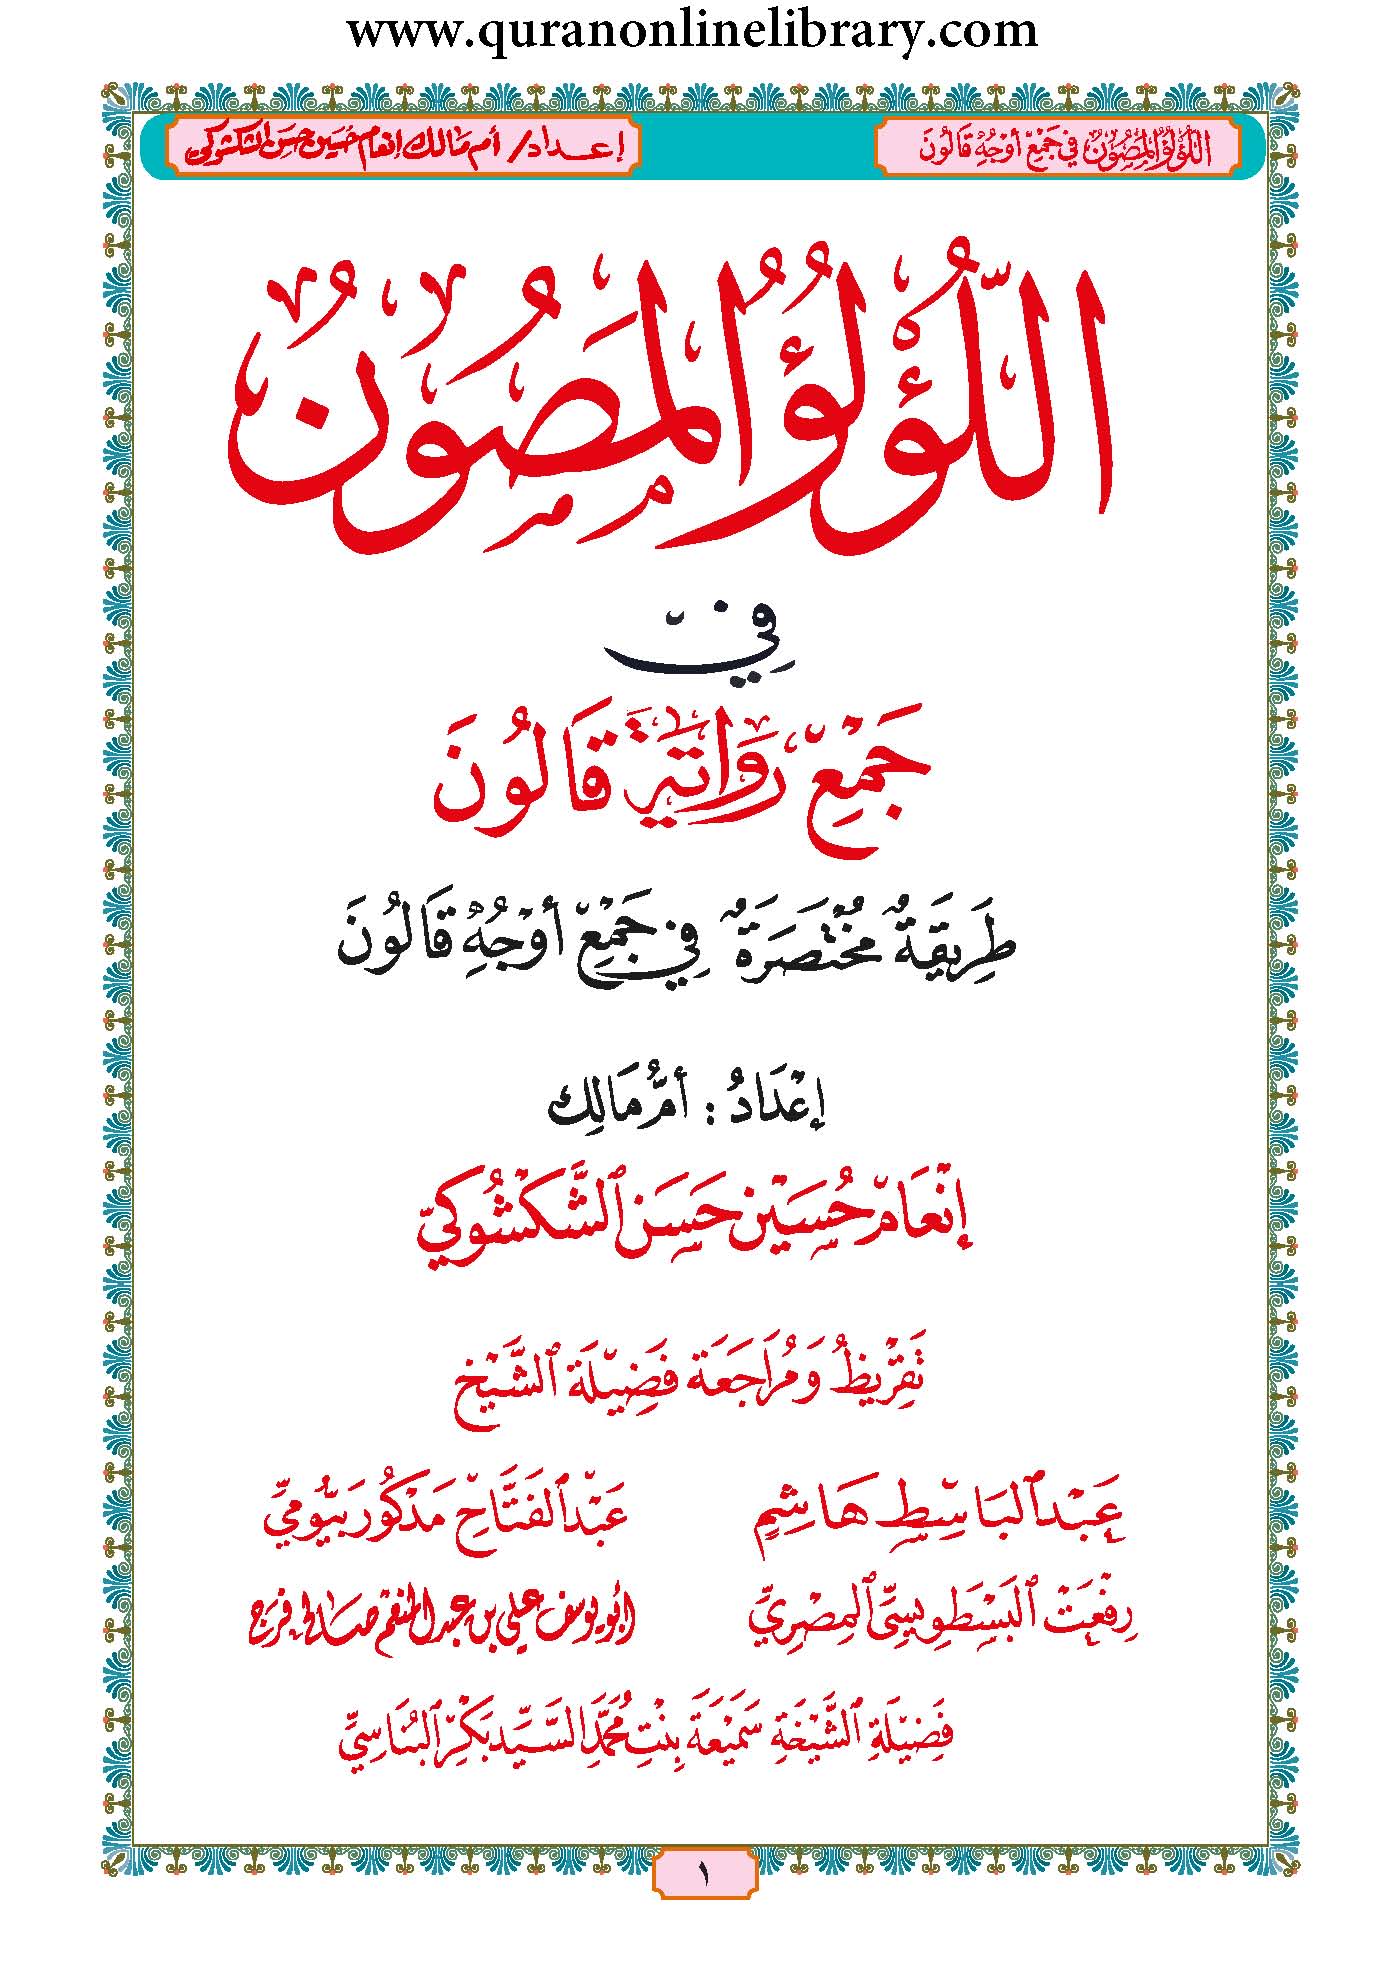 www.quranonlinelibrary.com
اللؤلؤ المصون في جمع أوجه قالون
إعداد/ أم مالك إنعام حسين حسن الشكشوكي
اللُّؤْلُؤُ المَصُونُ
فِي
جَمْعِ رِوَايَةِ قَالُونَ
طَرِيقَةٌ مُخْتَصَرَةٌ فِي جَمْعِ أَوْجُهِ قَالُونَ
إِعْدَادُ : أُمُّ مَالِك
إِنْعَام حُسَيْن حَسَن ٱلشَّكْشُوكِيّ
تَقْرِيظُ وَمُرَاجَعَة فَضِيلَة ٱلشَّيْخ
عَبْد ٱلبَاسِطِ هَاشِمٍ
عَبْد ٱلفَتَّاحِ مَدْكُور بَيُّومِيِّ
رِفْعَتْ ٱلبَسْطَوِيسِيِّ ٱلمِصْرِيِّ
أبو يوسف علي بن عبد المنعم صالح فرج
فَضِيلَةِ ٱلشَّيْخَةِ سَمِيْعَة بِنْتِ مُحَمَّد السَّيِّد بَكْر ٱلبُنَاسِيِّ
١